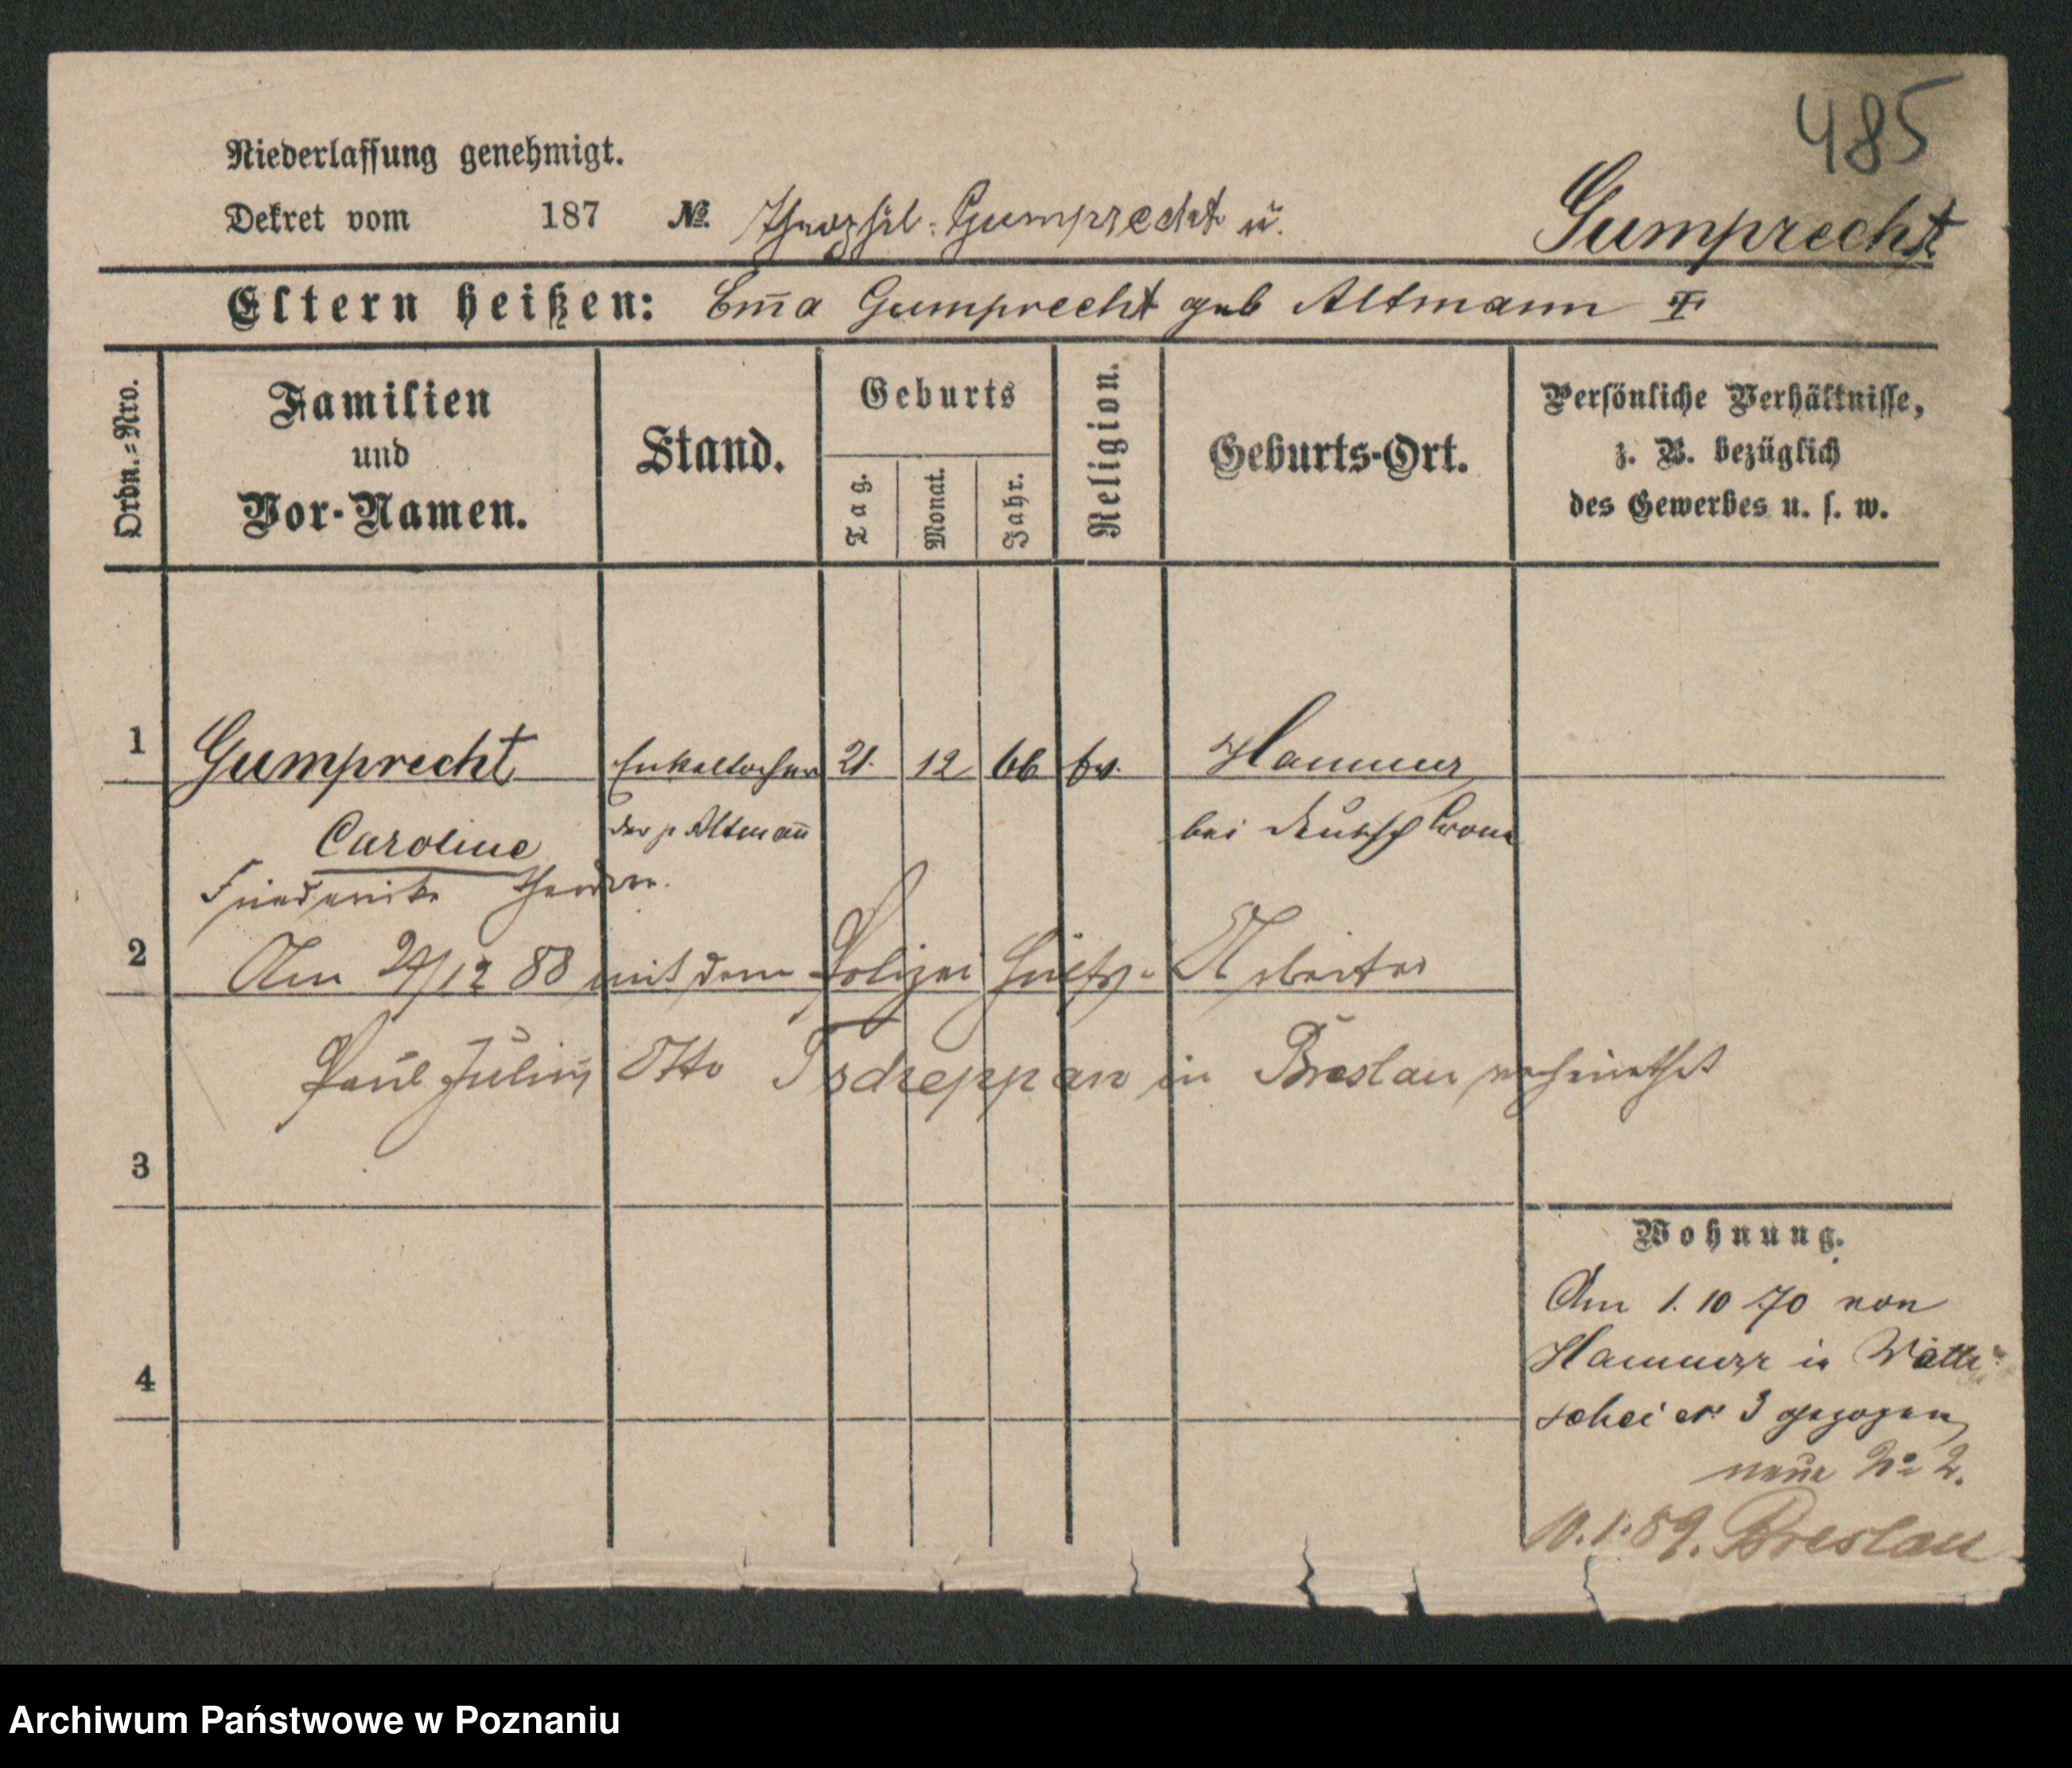 485
Niederlassung genehmigt.
Dekret vom 187 № Theophil Gumprecht u.
Gumprecht
Eltern heißen: Em̅a Gumprecht geb Altmann †
Ordn.=Nro.
Familien
und
Vor-Namen.
Stand.
Geburts
Tag.
Monat.
Jahr.
Religion.
Geburts-Ort.
Persönliche Verhältnisse,
z. B. bezüglich
des Gewerbes u. s. w.
1 Gumprecht Enkeltochter 21. 12 66 ev. Hammer
Caroline der p Altman̅ bei Deutsch Crone
Friederike
2 Am 24/12 88 mit dem Polizei Hülfs-Arbeiter
Paul Julius Otto Tschreppan in Breslau verheirathet
3
Wohnung.
Am 1. 10 70 von
Hammer in
3 gezogen
4
neue No 2.
10.1.89. Breslau
Archiwum Państwowe w Poznaniu